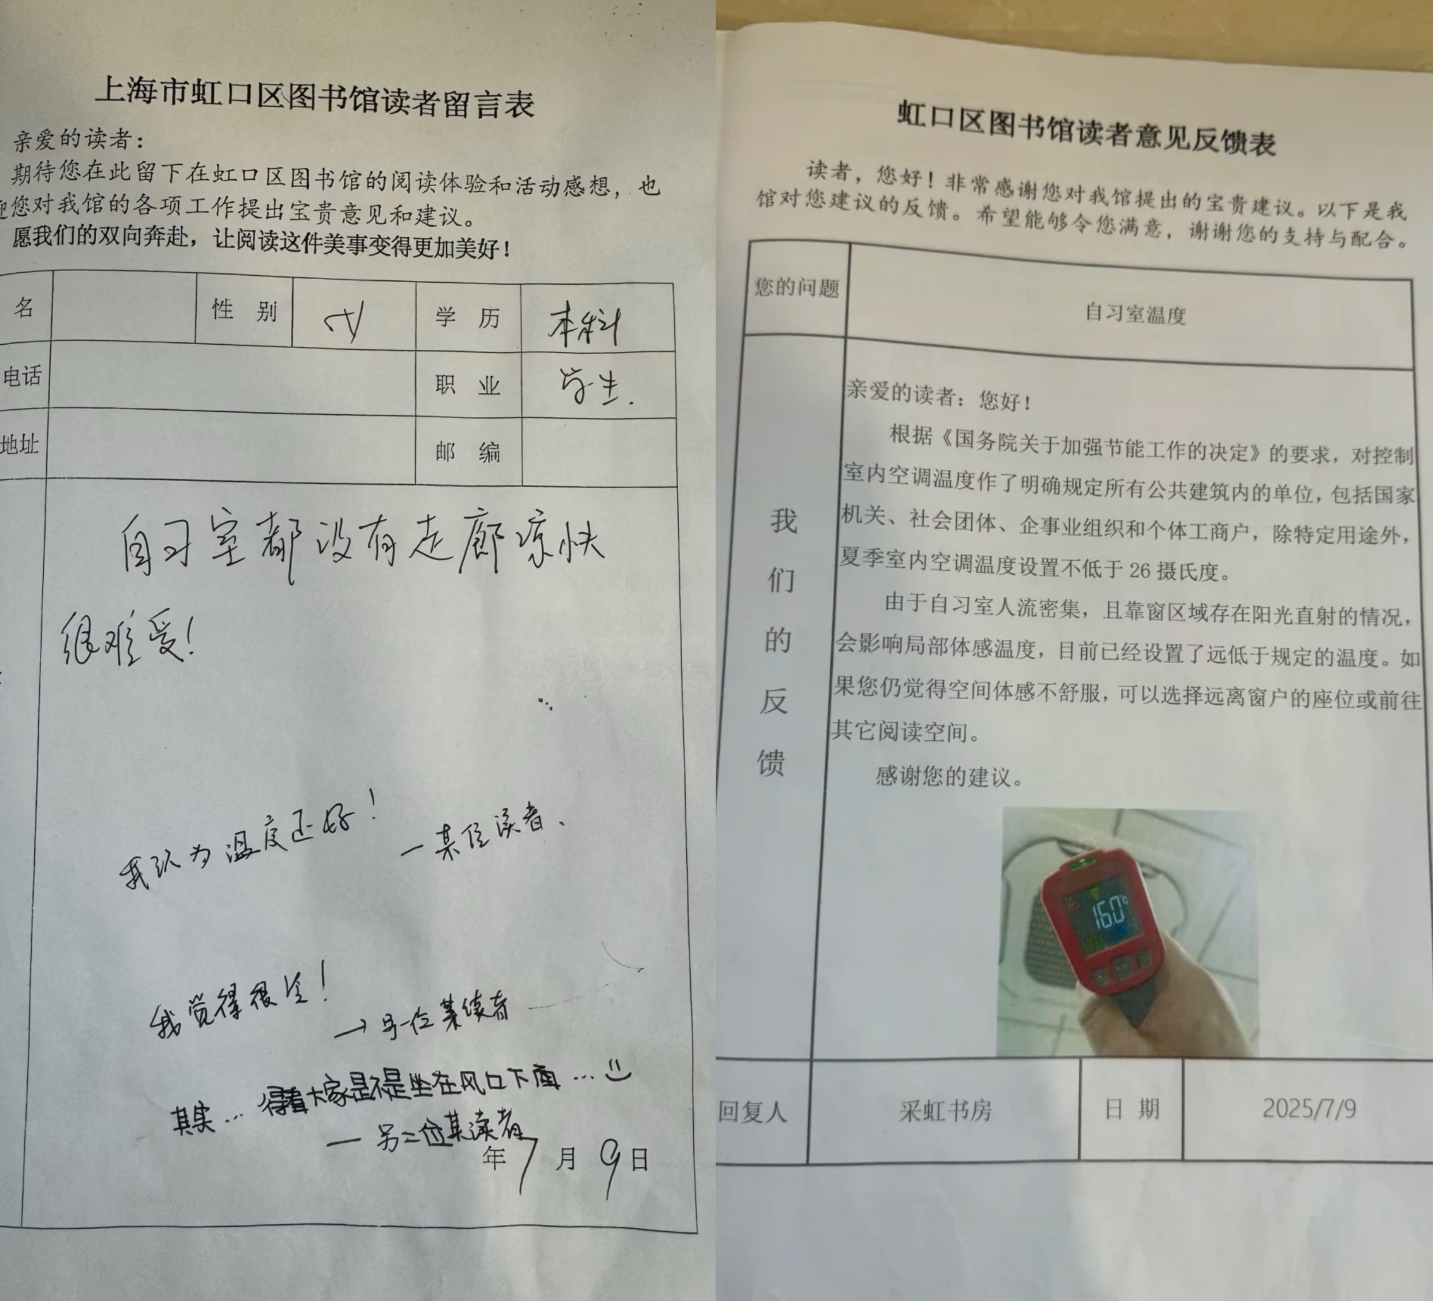 上海市虹口区图书馆读者留言表
亲爱的读者：
期待您在此留下在虹口区图书馆的阅读体验和活动感想，也
迎您对我馆的各项工作提出宝贵意见和建议。
愿我们的双向奔赴，让阅读这件美事变得更加美好！
名
性 别
女
学 历
本科
电话
职 业
学生.
地址
邮 编
自习室都没有走廊凉快
很难受！
我认为温度还好！
一某位读者、
我觉得很冷！
→另一位某读者
其实… 得看大家是不是坐在风口下面…
— 另二位某读者
年 7 月 9 日
虹口区图书馆读者意见反馈表
读者，您好！非常感谢您对我馆提出的宝贵建议。以下是我
馆对您建议的反馈。希望能够令您满意，谢谢您的支持与配合。
您的问题
自习室温度
我们的反馈
亲爱的读者：您好！
根据《国务院关于加强节能工作的决定》的要求，对控制
室内空调温度作了明确规定所有公共建筑内的单位，包括国家
机关、社会团体、企事业组织和个体工商户，除特定用途外，
夏季室内空调温度设置不低于 26 摄氏度。
由于自习室人流密集，且靠窗区域存在阳光直射的情况，
会影响局部体感温度，目前已经设置了远低于规定的温度。如
果您仍觉得空间体感不舒服，可以选择远离窗户的座位或前往
其它阅读空间。
感谢您的建议。
16.0°
回复人
采虹书房
日 期
2025/7/9